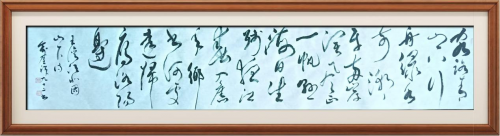 客路青
山外行
舟绿水
前潮
平两岸
阔风正
一帆悬
海日生
残夜江
春入旧
年乡
书何处
达归
雁洛阳
边
王湾次北固
山下诗